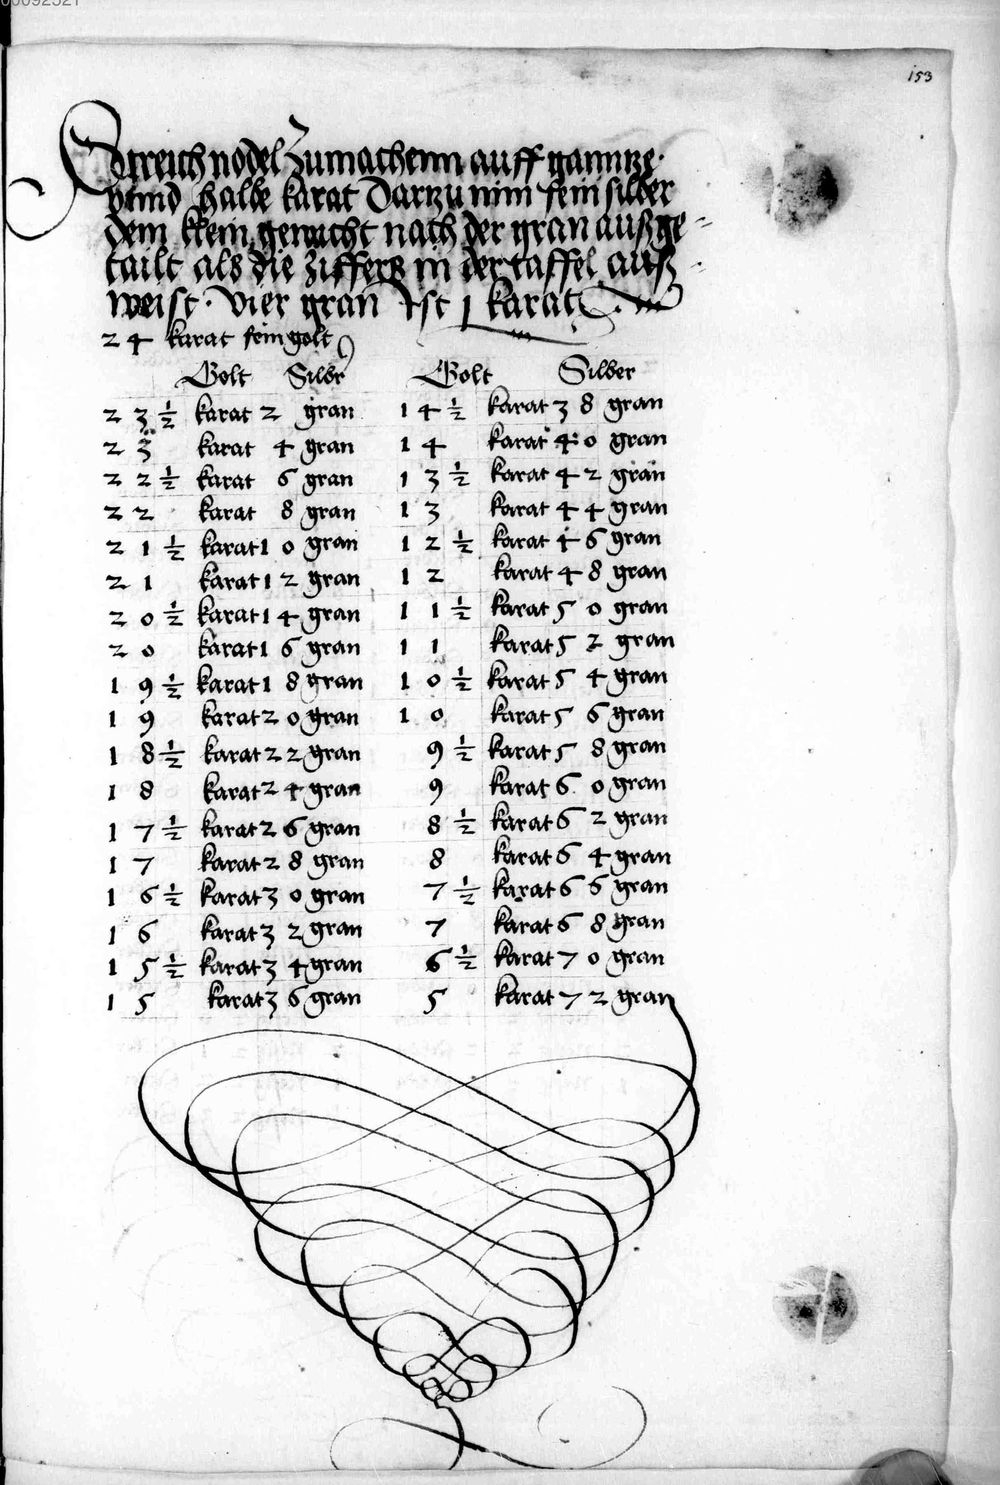 00092321
153
Streich nodel Zumachenn auff ganntze
vnnd halbe karat Dartzu nim fein silber
dem klein gemacht nach der gran außge=
tailt als die Ziffern in der taffel auß=
weist. Vier gran Ist 1 karat
24 karat fein golt
Golt Silbr Golt Silber
23 1/2 karat 2 gran 14 1/2 karat 38 gran
23 karat 4 gran 14 karat 40 gran
22 1/2 karat 6 gran 13 1/2 karat 42 gran
22 karat 8 gran 13 karat 44 gran
21 1/2 karat 10 gran 12 1/2 karat 46 gran
21 karat 12 gran 12 karat 48 gran
20 1/2 karat 14 gran 11 1/2 karat 50 gran
20 karat 16 gran 11 karat 52 gran
19 1/2 karat 18 gran 10 1/2 karat 54 gran
19 karat 20 gran 10 karat 56 gran
18 1/2 karat 22 gran 9 1/2 karat 58 gran
18 karat 24 gran 9 karat 60 gran
17 1/2 karat 26 gran 8 1/2 karat 62 gran
17 karat 28 gran 8 karat 64 gran
16 1/2 karat 30 gran 7 1/2 karat 66 gran
16 karat 32 gran 7 karat 68 gran
15 1/2 karat 34 gran 6 1/2 karat 70 gran
15 karat 36 gran 5 karat 72 gran